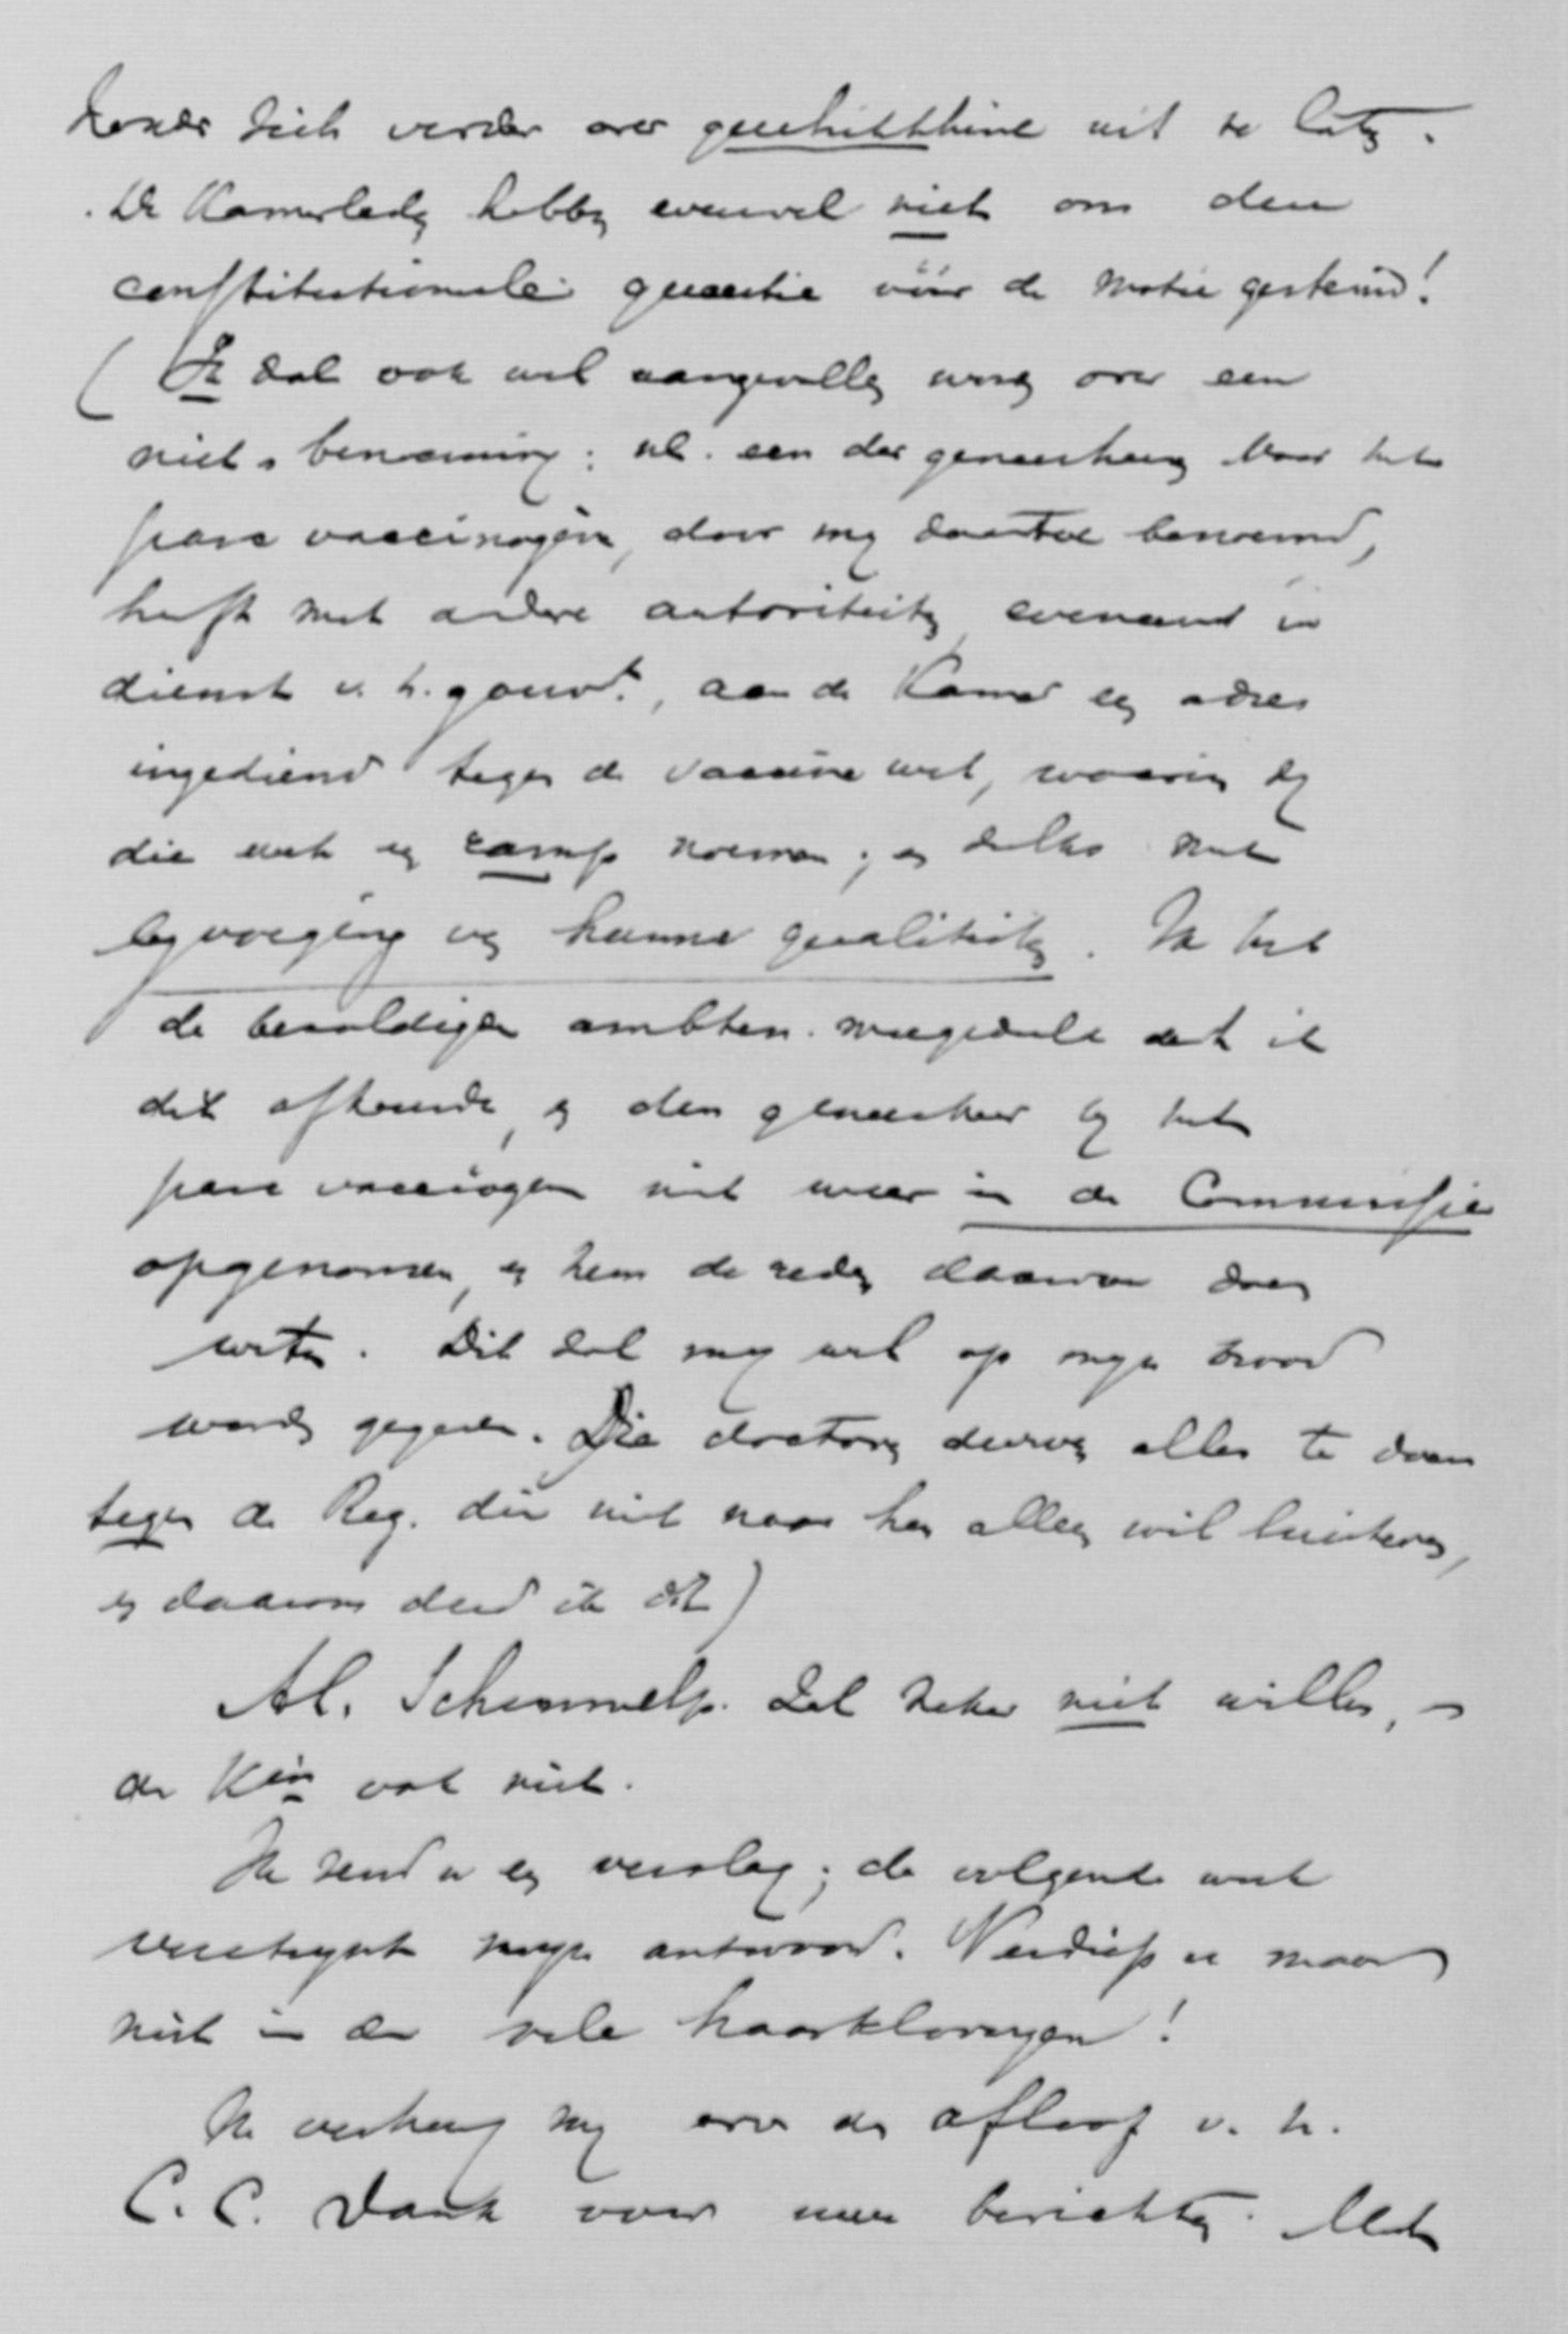 zonder zich verder over geschiktheid uit te laten.
De Kamerleden hebben evenwel niet om den
constitutioneele quaestie vóór de motie gestemd!
(Ik zal ook wel aangevallen worden over een
niet-benoeming: nl. een der geneesheeren voor het
parc vaccinogène, door mij daartoe benoemd,
heeft met andere autoriteiten, eveneens in
dienst v. h. gouvt., aan de Kamer een adres
ingediend tegen de vaccine wet, waarin zij
die wet een ramp noemen; en zulks met
bijvoeging van hunne qualiteiten. Ik heb
de bezoldigde ambten. meegedeeld dat ik
dit afkeurde, en den geneesheer bij het
parc vaccinogène niet weer in de Commissie
opgenomen, en hem de reden daarvan doen
weten. Dit zal mij wel op mijn brood
worden gegeven. Die doctoren durven alles te doen
tegen de Reg. die niet naar hen alleen wil luisteren,
en daarom deed ik dit)
Al. Schimmelp. zal zeker niet willen, –
de Kon ook niet.
Ik zend u een verslag; de volgende week
verschijnt mijn antwoord. Verdiep u maar
niet in de vele haarkloverijen!
Ik verheug mij over den afloop v. h.
C. C. Dank voor uwe berichten. Met